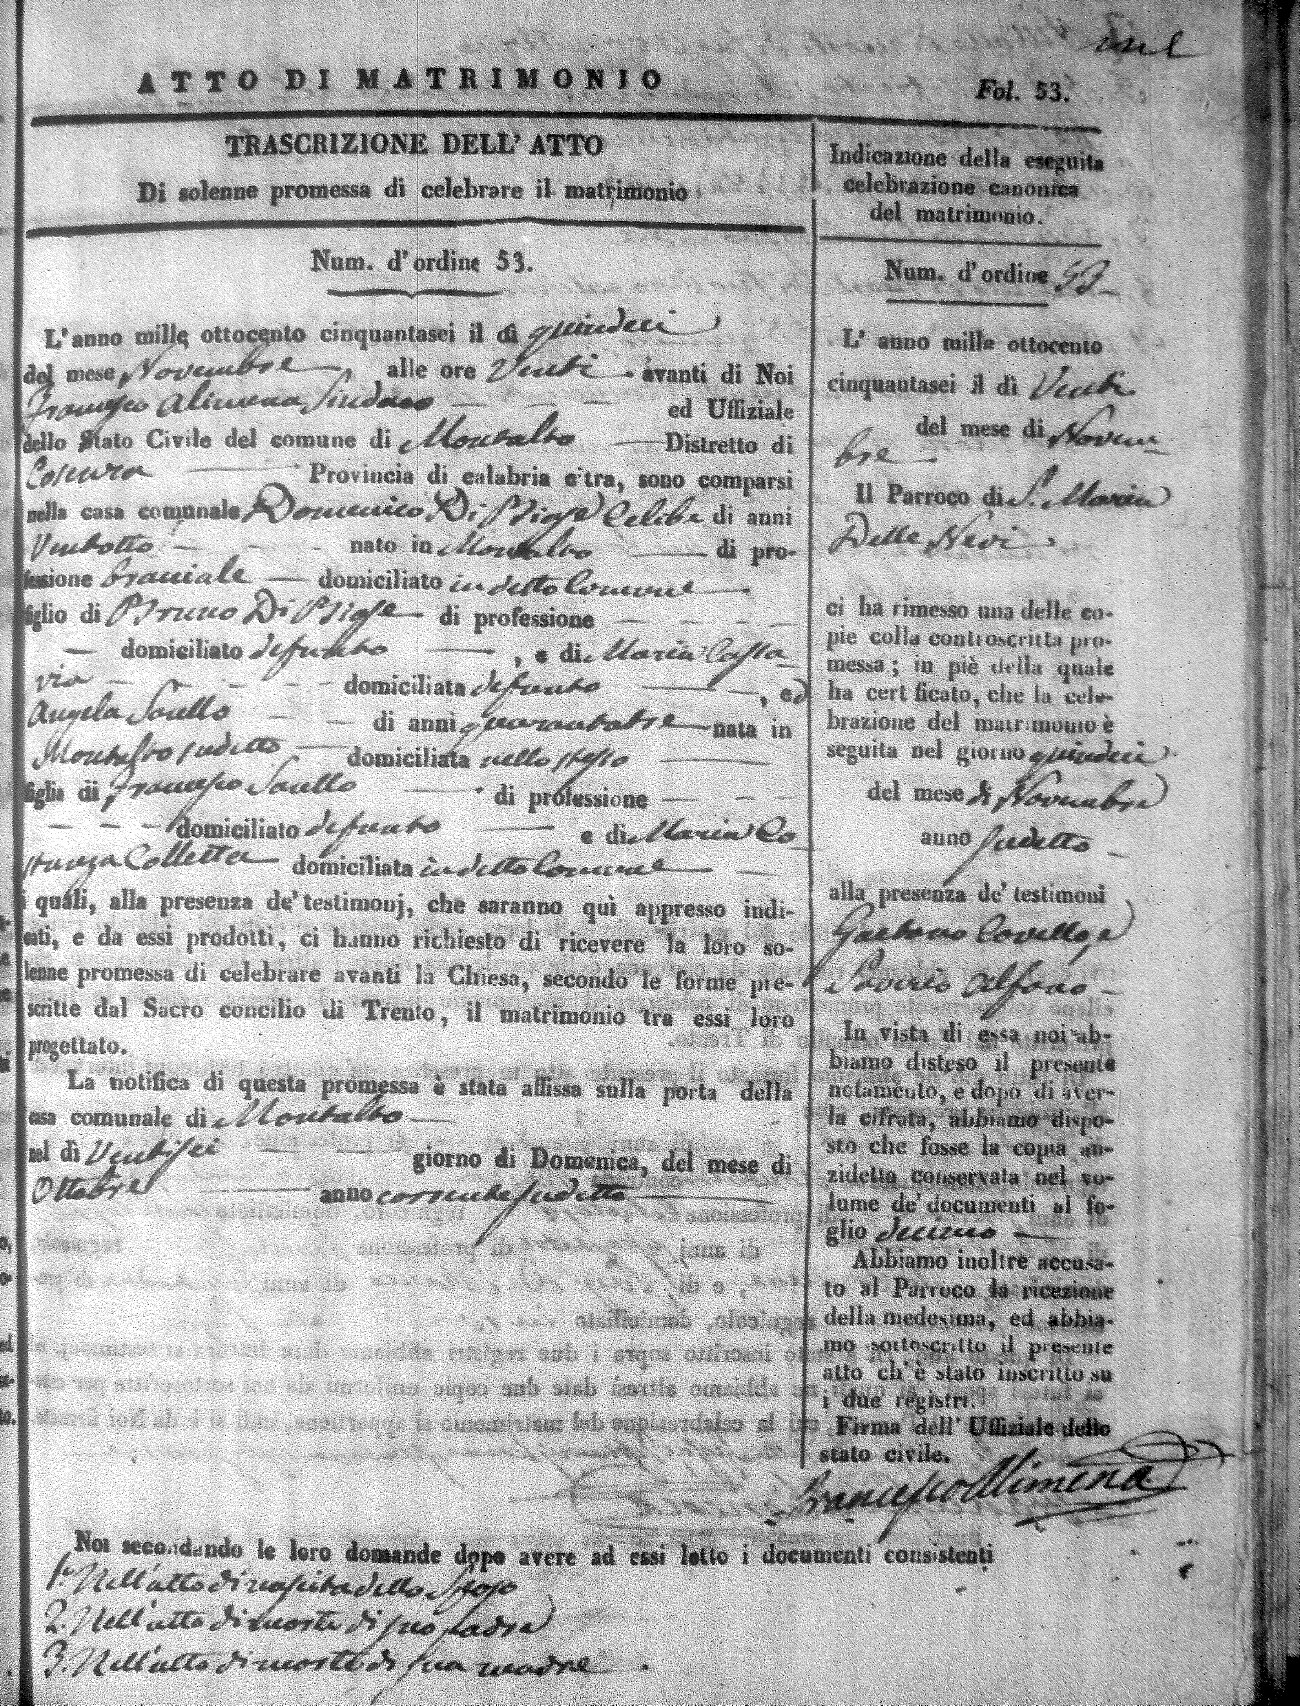 ATTO DI MATRIMONIO
Fol. 53.
TRASCRIZIONE DELL' ATTO
Di solenne promessa di celebrare il matrimonio
Num. d'ordine 53.
L'anno mille ottocento cinquantasei il dì quindici
del mese Novembre alle ore Venti avanti di Noi
Francesco Alimena Sindaco ed Uffiziale
dello Stato Civile del comune di Montalto Distretto di
Cosenza Provincia di calabria citra, sono comparsi
nella casa comunale Domenico Di Biase Celibe di anni
Ventotto nato in Montalto di pro-
fessione bracciale domiciliato in detto Comune
figlio di Bruno Di Biase di professione
domiciliato defunto , e di Maria
domiciliata defunta , ed
Angela Sciullo di anni quarantatre nata in
Montalto sudetto domiciliata nello stesso
figlia di Francesco di professione
domiciliato defunto e di Maria Co
stanza Colletta domiciliata in detto Comune
i quali, alla presenza de' testimonj, che saranno quì appresso indi-
cati, e da essi prodotti, ci hanno richiesto di ricevere la loro so-
lenne promessa di celebrare avanti la Chiesa, secondo le forme pre-
scritte dal Sacro concilio di Trento, il matrimonio tra essi loro
progettato.
La notifica di questa promessa è stata affissa sulla porta della
casa comunale di Montalto
nel dì Ventisei giorno di Domenica, del mese di
Ottobre anno corrente sudetto
Indicazione della eseguita
celebrazione canonica
del matrimonio.
Num. d'ordine 53
L' anno mille ottocento
cinquantasei il dì Venti
del mese di Novem
bre
Il Parroco di S. Maria
Delle Nevi
ci ha rimesso una delle co-
pie colla controscritta pro-
messa; in piè della quale
ha cert ficato, che la cele-
brazione del matrimonio è
seguita nel giorno quindici
del mese di Novembre
anno sudetto
alla presenza de' testimoni
Gaetano Covello e
Saverio Alfano
In vista di essa noi ab-
biamo disteso il presente
notamento, e dopo di aver-
la cifrata, abbiamo dispo-
sto che fosse la copia an-
zidetta conservata nel vo-
lume de' documenti al fo-
glio decimo
Abbiamo inoltre accusa-
to al Parroco la ricezione
della medesima, ed abbia-
mo sottoscritto il presente
atto ch' è stato inscritto su
i due registri.
Firma dell' Uffiziale dello
stato civile.
Francesco Alimena
Noi secondando le loro domande dopo avere ad essi letto i documenti consistenti
1. Nell'atto di nascita dello Sposo
2. Nell'atto di morte di suo padre
3. Nell'atto di morte di sua madre